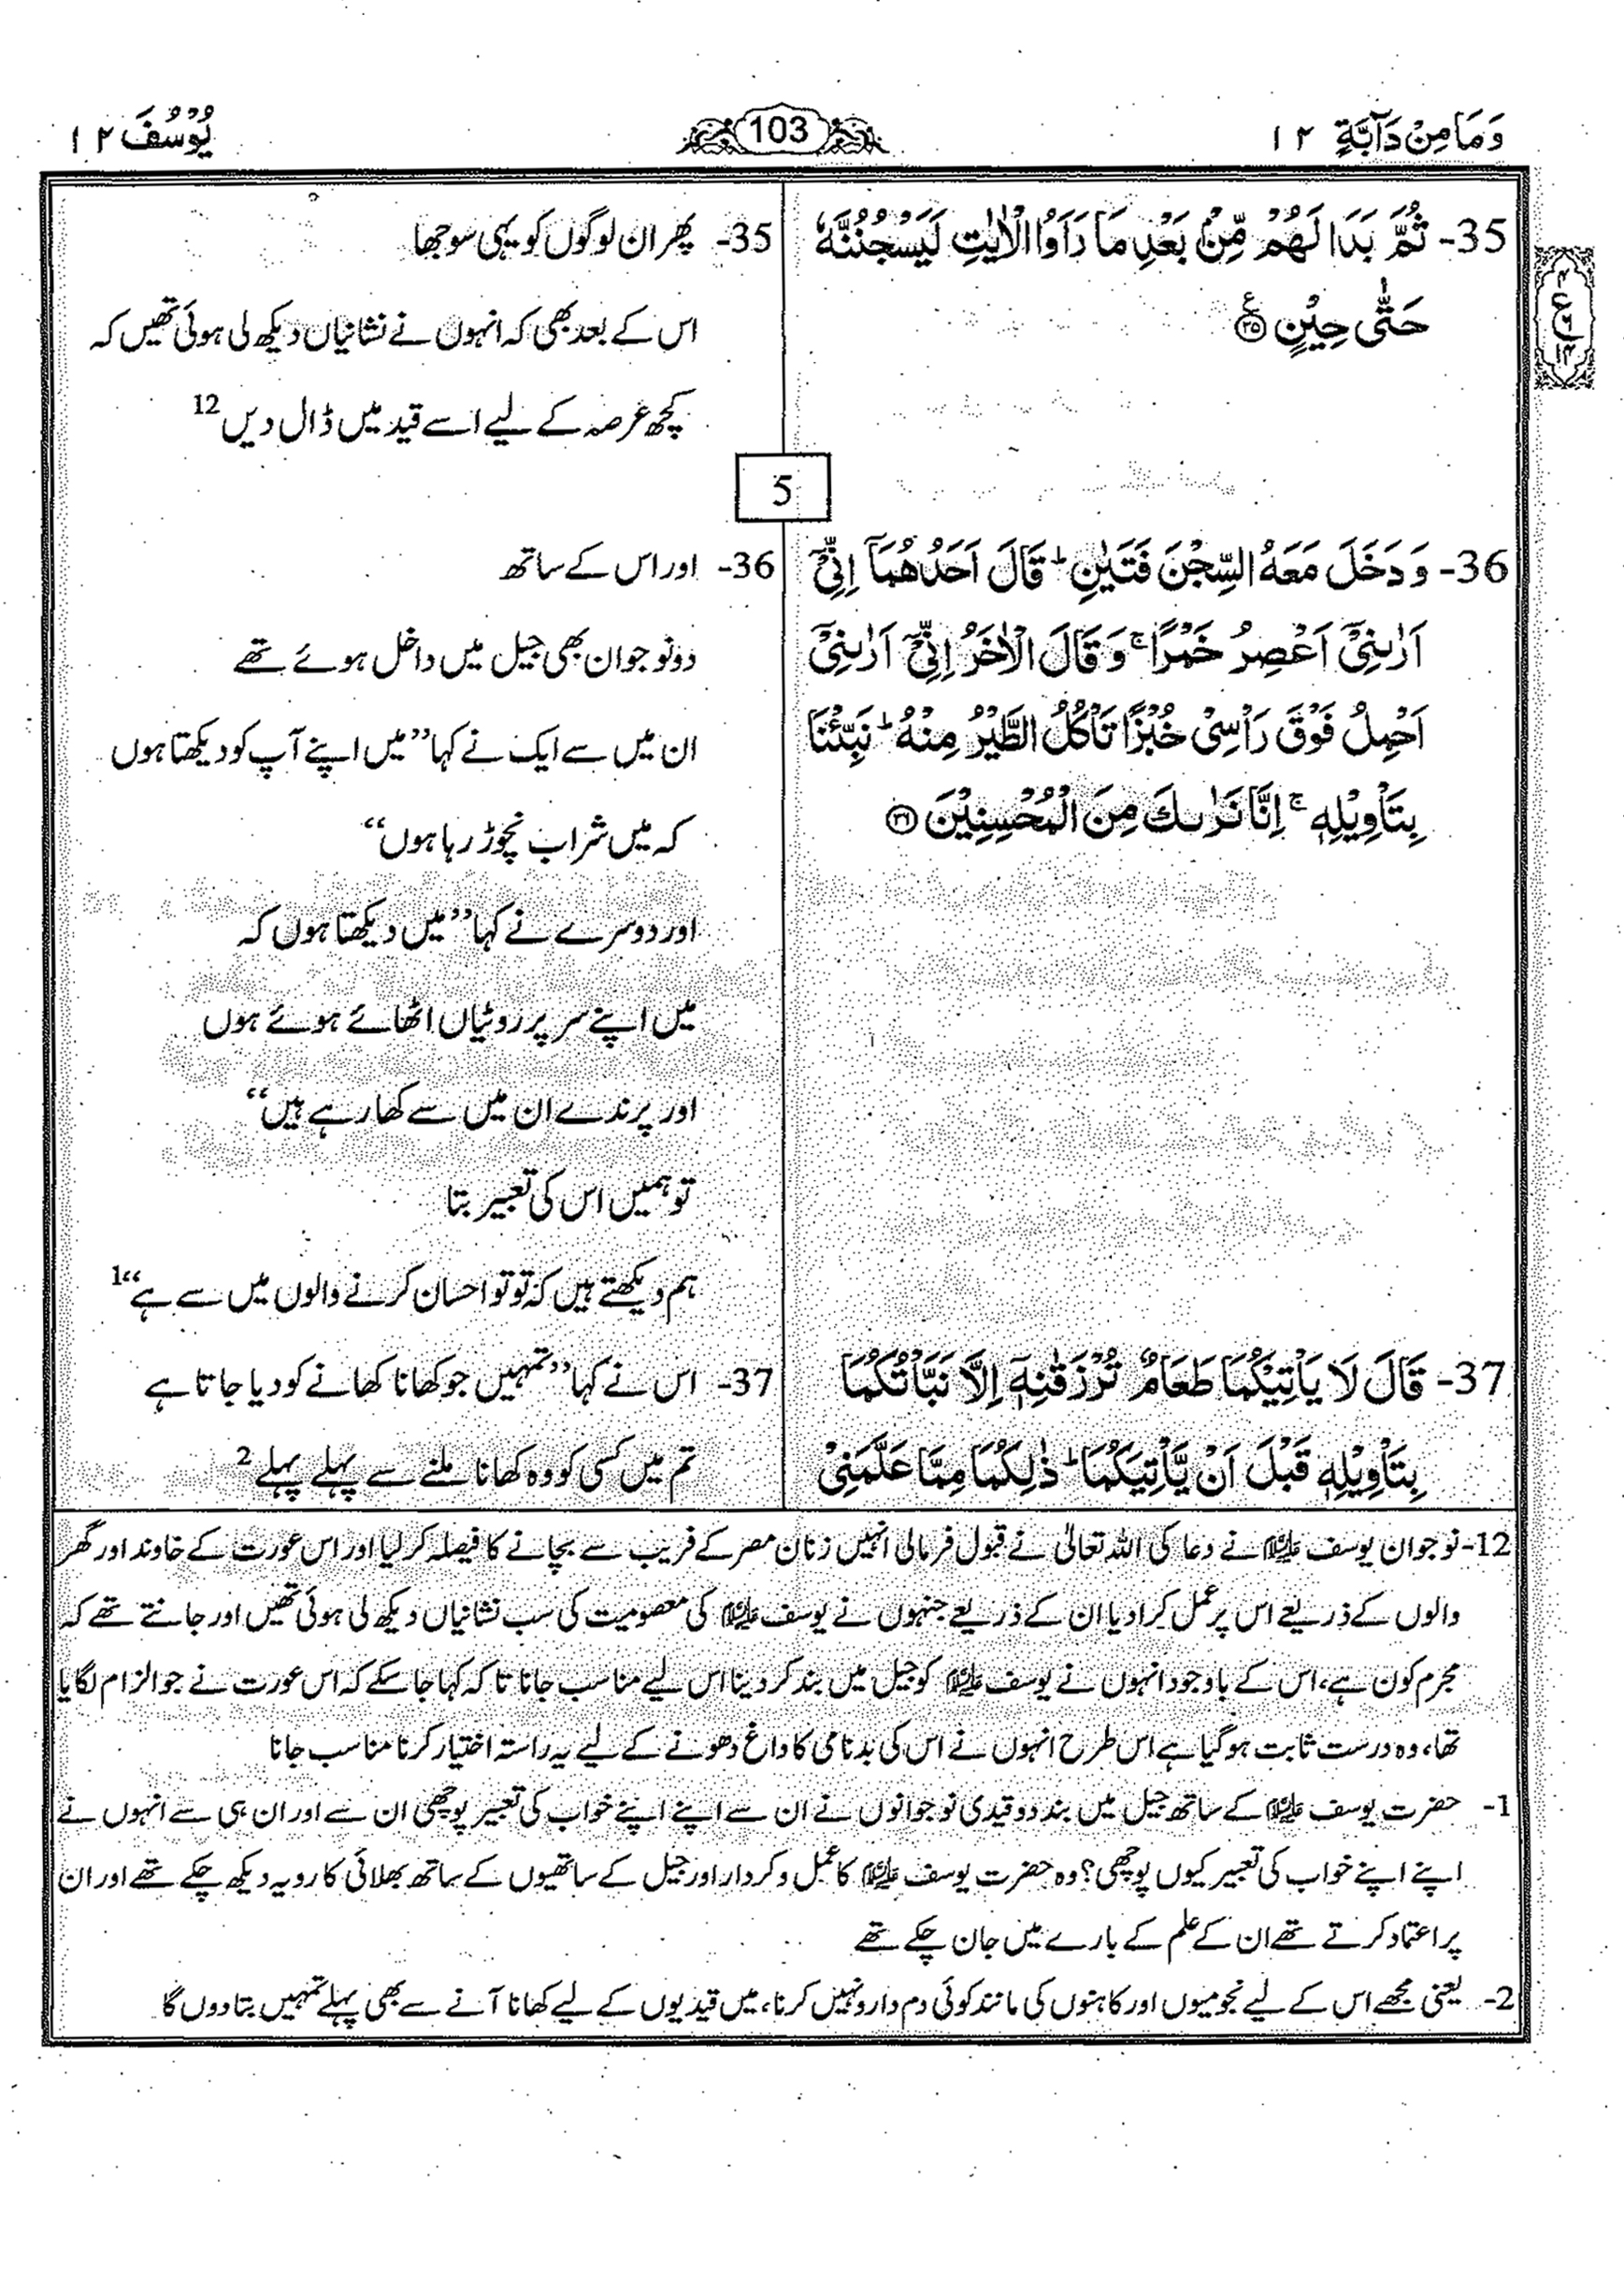 وَمَا مِنْ دَآبَّةٍ ۱۲
103
يُوْسُفَ ۱۲
35- ثُمَّ بَدَا لَهُمْ مِّنْۢ بَعْدِ مَا رَاَوُا الْاٰيٰتِ لَيَسْجُنُنَّهٗ
حَتّٰى حِيْنٍ ۳۵
35- پھر ان لوگوں کو یہی سوجھا
اس کے بعد بھی کہ انہوں نے نشانیاں دیکھ لی ہوئی تھیں کہ
کچھ عرصہ کے لیے اسے قید میں ڈال دیں 12
5
36- وَ دَخَلَ مَعَهُ السِّجْنَ فَتَيٰنِ ؕ قَالَ اَحَدُهُمَاۤ اِنِّيْۤ
اَرٰىنِيْۤ اَعْصِرُ خَمْرًا ۚ وَ قَالَ الْاٰخَرُ اِنِّيْۤ اَرٰىنِيْۤ
اَحْمِلُ فَوْقَ رَاْسِيْ خُبْزًا تَاْكُلُ الطَّيْرُ مِنْهُ ؕ نَبِّئْنَا
بِتَاْوِيْلِهٖ ۚ اِنَّا نَرٰىكَ مِنَ الْمُحْسِنِيْنَ ۳۶
36- اور اس کے ساتھ
دو نوجوان بھی جیل میں داخل ہوئے تھے
ان میں سے ایک نے کہا ”میں اپنے آپ کو دیکھتا ہوں
کہ میں شراب نچوڑ رہا ہوں“
اور دوسرے نے کہا ”میں دیکھتا ہوں کہ
میں اپنے سر پر روٹیاں اٹھائے ہوئے ہوں
اور پرندے ان میں سے کھا رہے ہیں“
تو ہمیں اس کی تعبیر بتا
ہم دیکھتے ہیں کہ تو تو احسان کرنے والوں میں سے ہے“ 1
37- قَالَ لَا يَاْتِيْكُمَا طَعَامٌ تُرْزَقٰنِهٖۤ اِلَّا نَبَّاْتُكُمَا
بِتَاْوِيْلِهٖ قَبْلَ اَنْ يَّاْتِيَكُمَا ؕ ذٰلِكُمَا مِمَّا عَلَّمَنِيْ
37- اس نے کہا ”تمہیں جو کھانا کھانے کو دیا جاتا ہے
تم میں کسی کو وہ کھانا ملنے سے پہلے پہلے 2
12- نوجوان یوسف علیہ السلام نے دعا کی اللہ تعالیٰ نے قبول فرمالی انہیں زنان مصر کے فریب سے بچانے کا فیصلہ کر لیا اور اس عورت کے خاوند اور گھر
والوں کے ذریعے اس پر عمل کرا دیا ان کے ذریعے جنہوں نے یوسف علیہ السلام کی معصومیت کی سب نشانیاں دیکھ لی ہوئی تھیں اور جانتے تھے کہ
مجرم کون ہے، اس کے باوجود انہوں نے یوسف علیہ السلام کو جیل میں بند کر دینا اس لیے مناسب جانا تا کہ کہا جا سکے کہ اس عورت نے جو الزام لگایا
تھا، وہ درست ثابت ہو گیا ہے اس طرح انہوں نے اس کی بدنامی کا داغ دھونے کے لیے یہ راستہ اختیار کرنا مناسب جانا
1- حضرت یوسف علیہ السلام کے ساتھ جیل میں بند دو قیدی نوجوانوں نے ان سے اپنے اپنے خواب کی تعبیر پوچھی ان سے اور ان ہی سے انہوں نے
اپنے اپنے خواب کی تعبیر کیوں پوچھی؟ وہ حضرت یوسف علیہ السلام کا عمل و کردار اور جیل کے ساتھیوں کے ساتھ بھلائی کا رویہ دیکھ چکے تھے اور ان
پر اعتماد کرتے تھے ان کے علم کے بارے میں جان چکے تھے
2- یعنی مجھے اس کے لیے نجومیوں اور کاہنوں کی مانند کوئی دم دارو نہیں کرنا، میں قیدیوں کے لیے کھانا آنے سے بھی پہلے تمہیں بتا دوں گا